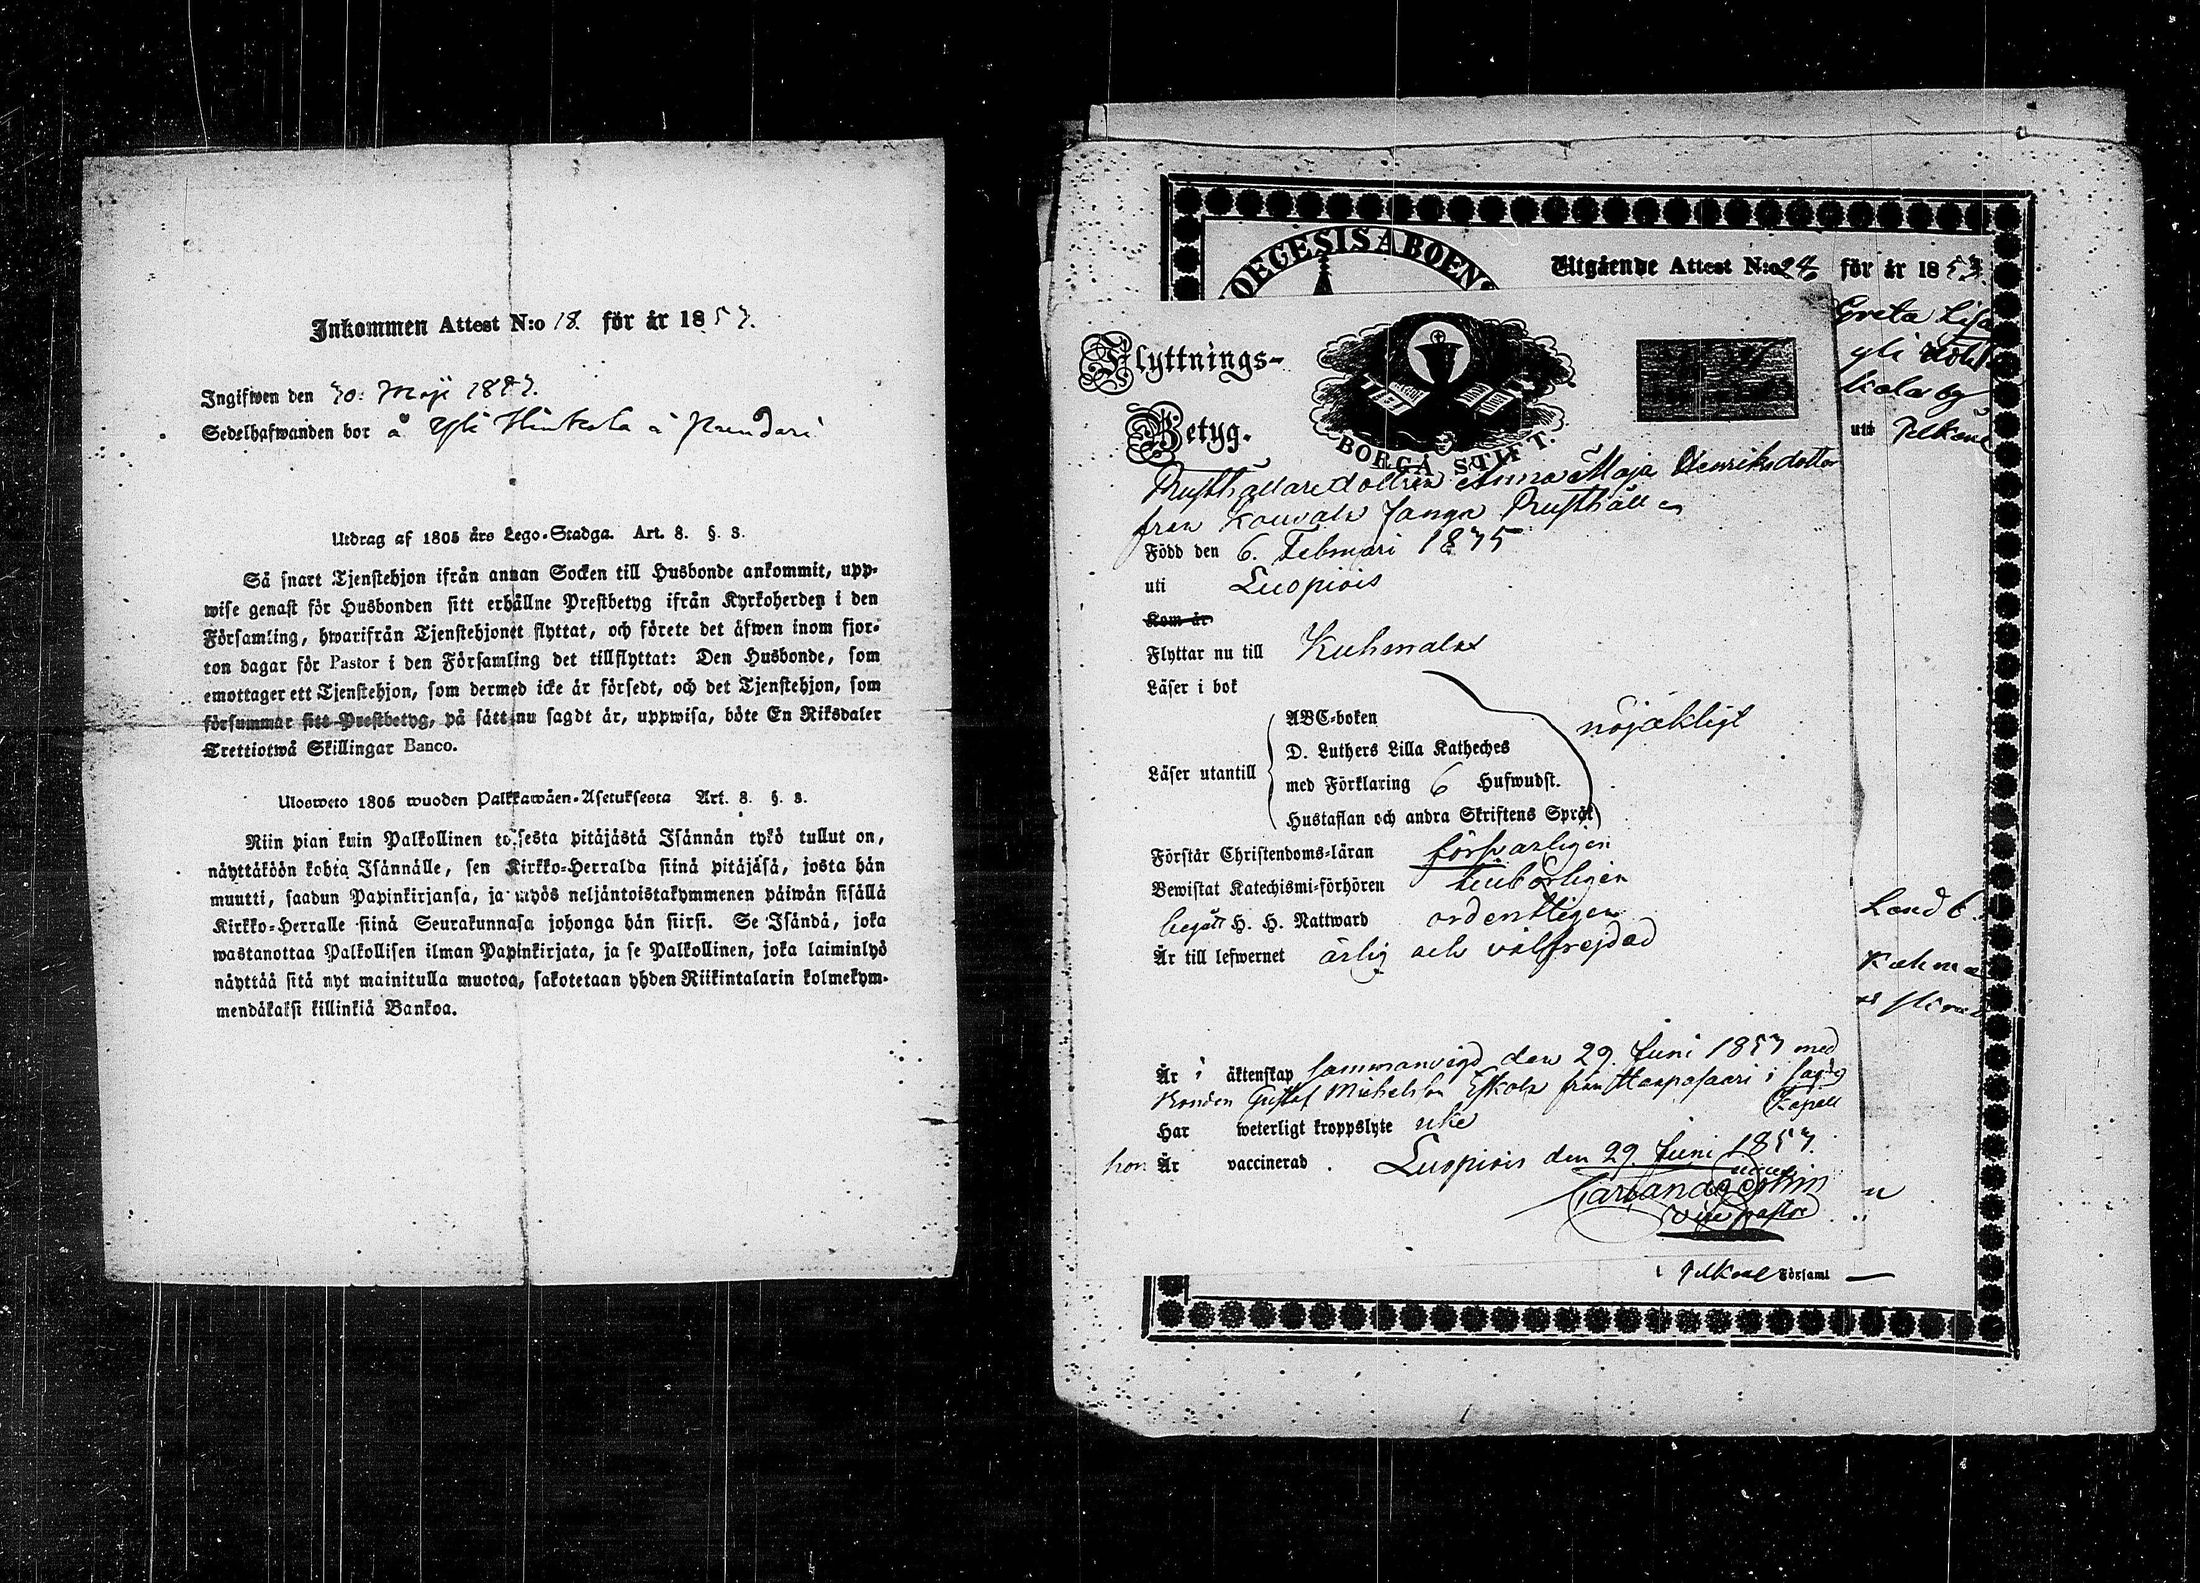 Inkommen Attest N:o 18. för år 1853.
Ingifwen den 30. Maji 1853.
Sedelhafwanden bor å Yli Hinkola i Pundari
Utdrag af 1805 års Lego-Stadga. Art. 8. §. 3.
Så snart Tjenstehjon ifrån annan Socken till Husbonde ankommit, upp-
wise genast för Husbonden sitt erhållne Prestbetyg ifrån Kyrkoherden i den
Församling, hwarifrån Tjenstehjonet flyttat, och förete det äfwen inom fjor-
ton dagar för Pastor i den Församling det tillflyttat: Den Husbonde, som
emottager ett Tjenstehjon, som dermed icke är försedt, och det Tjenstehjon, som
försummar sitt Prestbetyg, på sätt nu sagdt är, uppwisa, böte En Riksdaler
Trettiotwå Skillingar Banco.
Ulosweto 1805 wuoden Palkkawäen-Asetuksesta Art. 8. §. 3.
Niin pian kuin Palkollinen toisesta pitäjästä Isännän tykö tullut on,
näyttäköön kohta Isännälle, sen Kirkko-Herralda siinä pitäjäsä, josta hän
muutti, saadun Papinkirjansa, ja myös neljäntoistakymmenen päiwän sisällä
Kirkko-Herralle siinä Seurakunnasa johonga hän siirsi. Se Isändä, joka
wastanottaa Palkollisen ilman Papinkirjata, ja se Palkollinen, joka laiminlyö
näyttää sitä nyt mainitulla muotoa, sakotetaan yhden Riikintalarin kolmekym-
mendäkaksi killinkiä Bankoa.
OEGESIS ABOENS
Utgående Attest N:o 24 för år 1853.
Greta Lisa
yli
by
uti Pelkäne
Flyttnings-
Betyg.
BORGÅ STIFT.
Rusthållaredottren Anna Maja Henriksdotter
från Kouvala Janga Rusthåll
Född den 6. Februari 1835
uti Luopiois
Kom år
Flyttar nu till Kuhmalax
Läser i bok
ABC-boken
nöjaktligt
D. Luthers Lilla Katheches
Läser utantill
med Förklaring 6 Hufwudst.
Hustaflan och andra Skriftens Språk
Förstår Christendoms-läran försvarligen
Bewistat Katechismi-förhören
begått H. H. Nattward ordentligen
Är till lefwernet ärlig och välfrejdad
Land b.
Kuhma
Är i äktenskap sammanvigd den 29. Juni 1853 med
Bonden Gustaf Michelsson Eskola från Haapasaari i
Kapell
Har weterligt kroppslyte icke
hon Är vaccinerad. Luopiois den 29. Juni 1853.
Vice pastor
i Pelkäne Församl